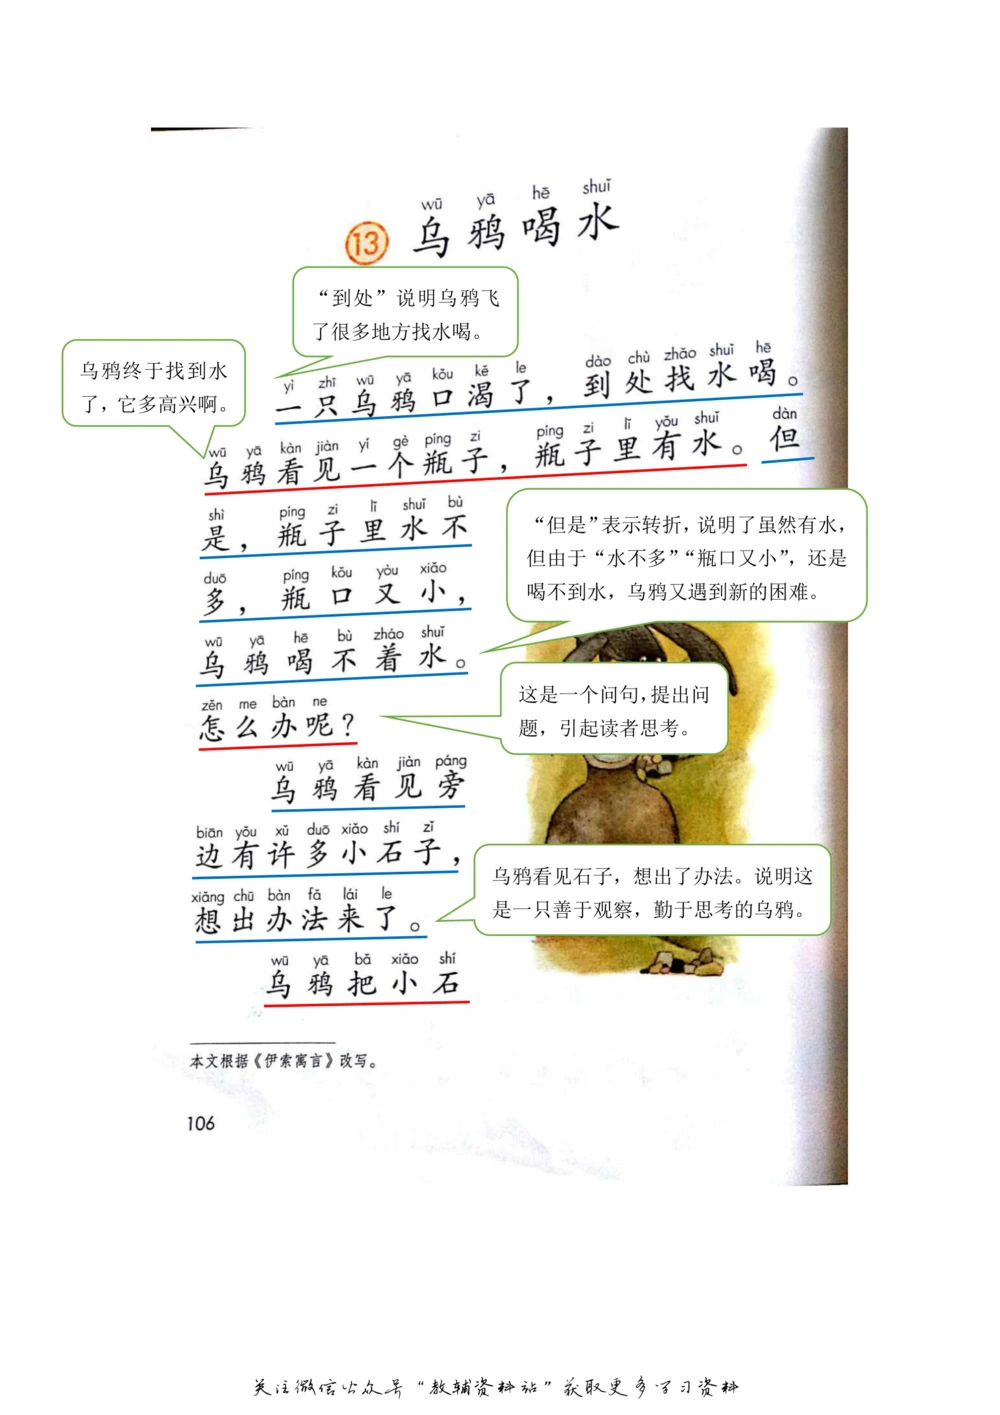 wū yā hē shuǐ
13 乌鸦喝水
“到处”说明乌鸦飞
了很多地方找水喝。
乌鸦终于找到水
了，它多高兴啊。
yì zhī wū yā kǒu kě le dào chù zhǎo shuǐ hē
一只乌鸦口渴了，到处找水喝。
wū yā kàn jiàn yí gè píng zi píng zi lǐ yǒu shuǐ dàn
乌鸦看见一个瓶子，瓶子里有水。但
shì píng zi lǐ shuǐ bù
是，瓶子里水不
“但是”表示转折，说明了虽然有水，
但由于“水不多”“瓶口又小”，还是
喝不到水，乌鸦又遇到新的困难。
duō píng kǒu yòu xiǎo
多，瓶口又小，
wū yā hē bù zháo shuǐ
乌鸦喝不着水。
zěn me bàn ne
怎么办呢？
这是一个问句，提出问
题，引起读者思考。
wū yā kàn jiàn páng
乌鸦看见旁
biān yǒu xǔ duō xiǎo shí zǐ
边有许多小石子，
xiǎng chū bàn fǎ lái le
想出办法来了。
乌鸦看见石子，想出了办法。说明这
是一只善于观察，勤于思考的乌鸦。
wū yā bǎ xiǎo shí
乌鸦把小石
本文根据《伊索寓言》改写。
106
关注微信公众号“教辅资料站”获取更多学习资料